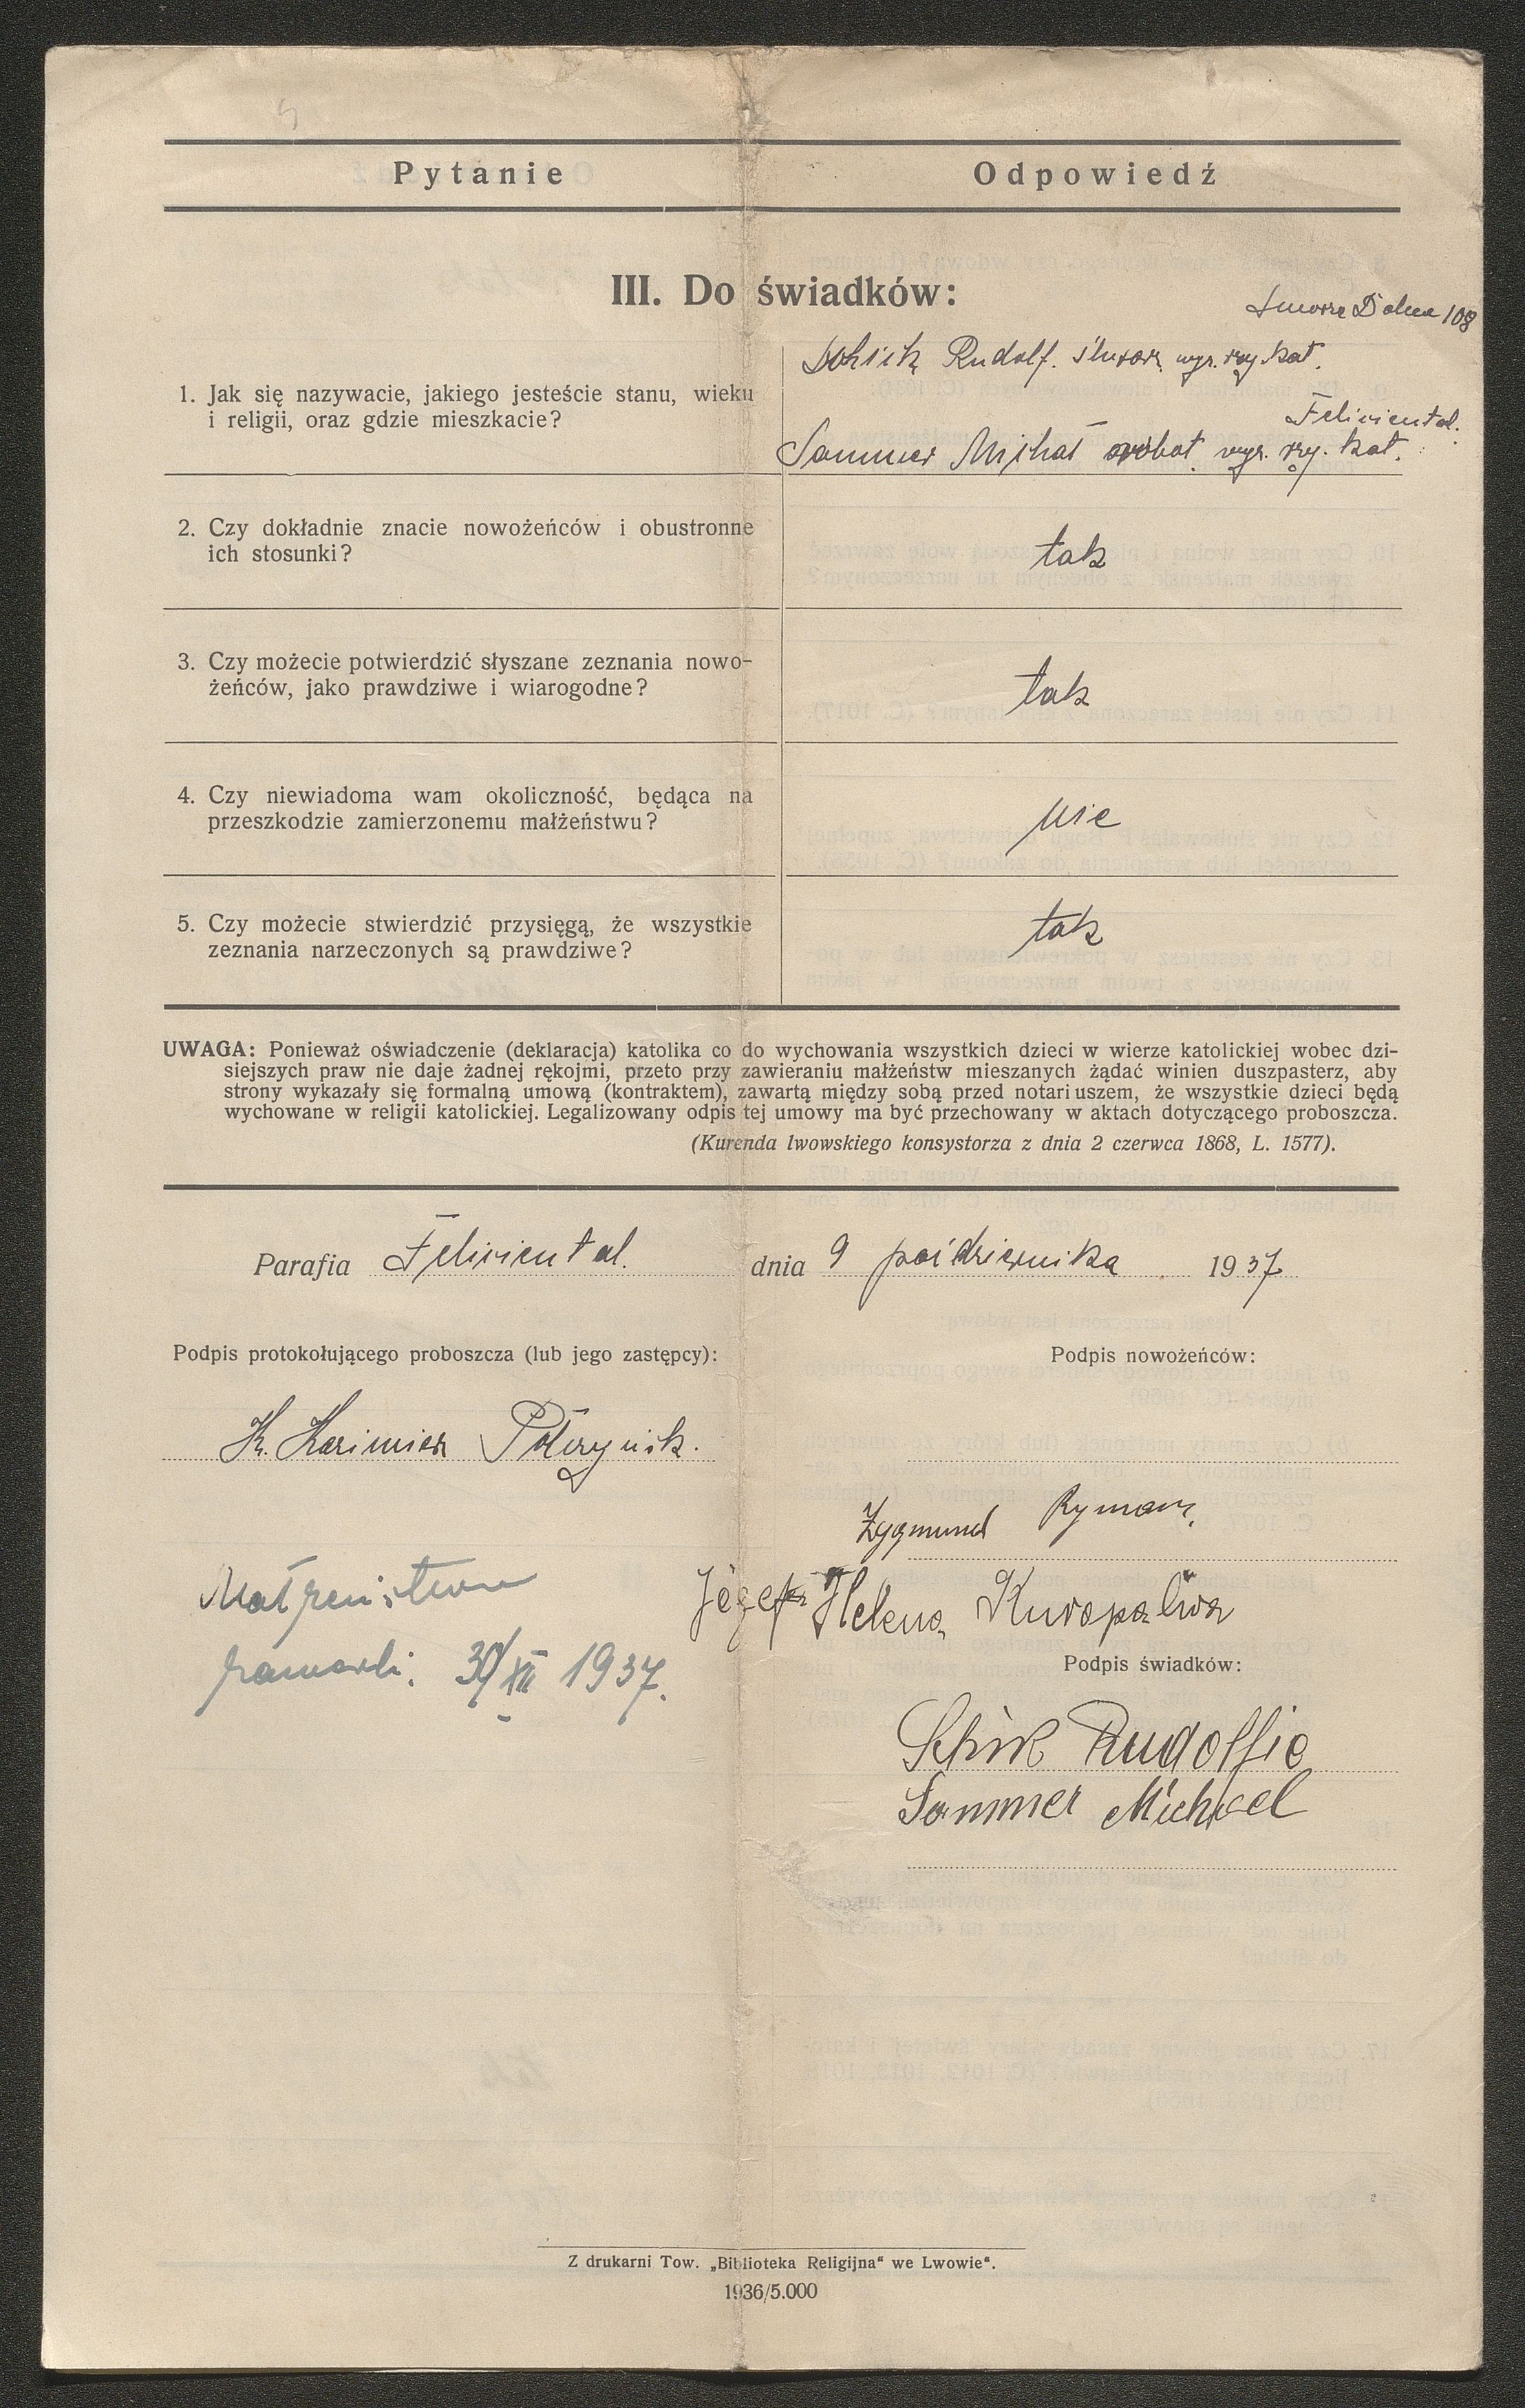 Pytanie
Odpowiedź
III. Do świadków:
108
Rudolf. wyz. rzy. kat.
1. Jak się nazywacie, jakiego jesteście stanu, wieku
i religii, oraz gdzie mieszkacie?
Feliciental.
Sammer Michał wyz. rzy. kat.
2. Czy dokładnie znacie nowożeńców i obustronne
ich stosunki?
tak
3. Czy możecie potwierdzić słyszane zeznania nowo-
żeńców, jako prawdziwe i wiarogodne?
tak
4. Czy niewiadoma wam okoliczność, będąca na
przeszkodzie zamierzonemu małżeństwu?
nie
5. Czy możecie stwierdzić przysięgą, że wszystkie
zeznania narzeczonych są prawdziwe?
tak
UWAGA: Ponieważ oświadczenie (deklaracja) katolika co do wychowania wszystkich dzieci w wierze katolickiej wobec dzi-
siejszych praw nie daje żadnej rękojmi, przeto przy zawieraniu małżeństw mieszanych żądać winien duszpasterz, aby
strony wykazały się formalną umową (kontraktem), zawartą między sobą przed notariuszem, że wszystkie dzieci będą
wychowane w religii katolickiej. Legalizowany odpis tej umowy ma być przechowany w aktach dotyczącego proboszcza.
(Kurenda lwowskiego konsystorza z dnia 2 czerwca 1868, L. 1577).
Parafia Feliciental. dnia 9 października 1937
Podpis protokołującego proboszcza (lub jego zastępcy):
Podpis nowożeńców:
Kazimierz
Zygmund Rymarz
Helena Kuropatwa
Małżeństwo
zawarli. XII 1937.
Podpis świadków:
Rudolfie
Sammer Michael
Z drukarni Tow. „Biblioteka Religijna“ we Lwowie“.
1936/5.000